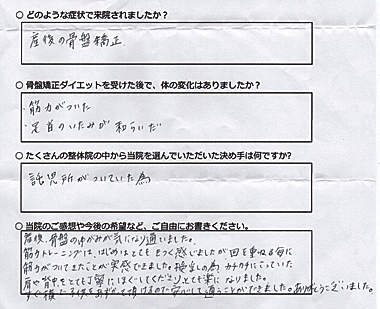 ○ どのような症状で来院されましたか？
産後の骨盤矯正
○ 骨盤矯正ダイエットを受けた後で、体の変化はありましたか？
・筋力がついた
・足首のいたみが和らいだ
○ たくさんの整体院の中から当院を選んでいただいた決め手は何ですか?
託児所がついていた為
○ 当院のご感想や今後の希望など、ご自由にお書きください。
産後、骨盤のゆがみが気になり通いました。
筋力トレーニングは、はじめはとてもきつく感じましたが回を重ねる毎に
筋力がついてきたことが実感できました。授乳の為 カチカチにこっていた
肩や背中をとても丁寧にほぐしてくださりとても楽になりました。
すぐ横に子供をあずけて頂けるので安心して通うことができました。ありがとうございました。